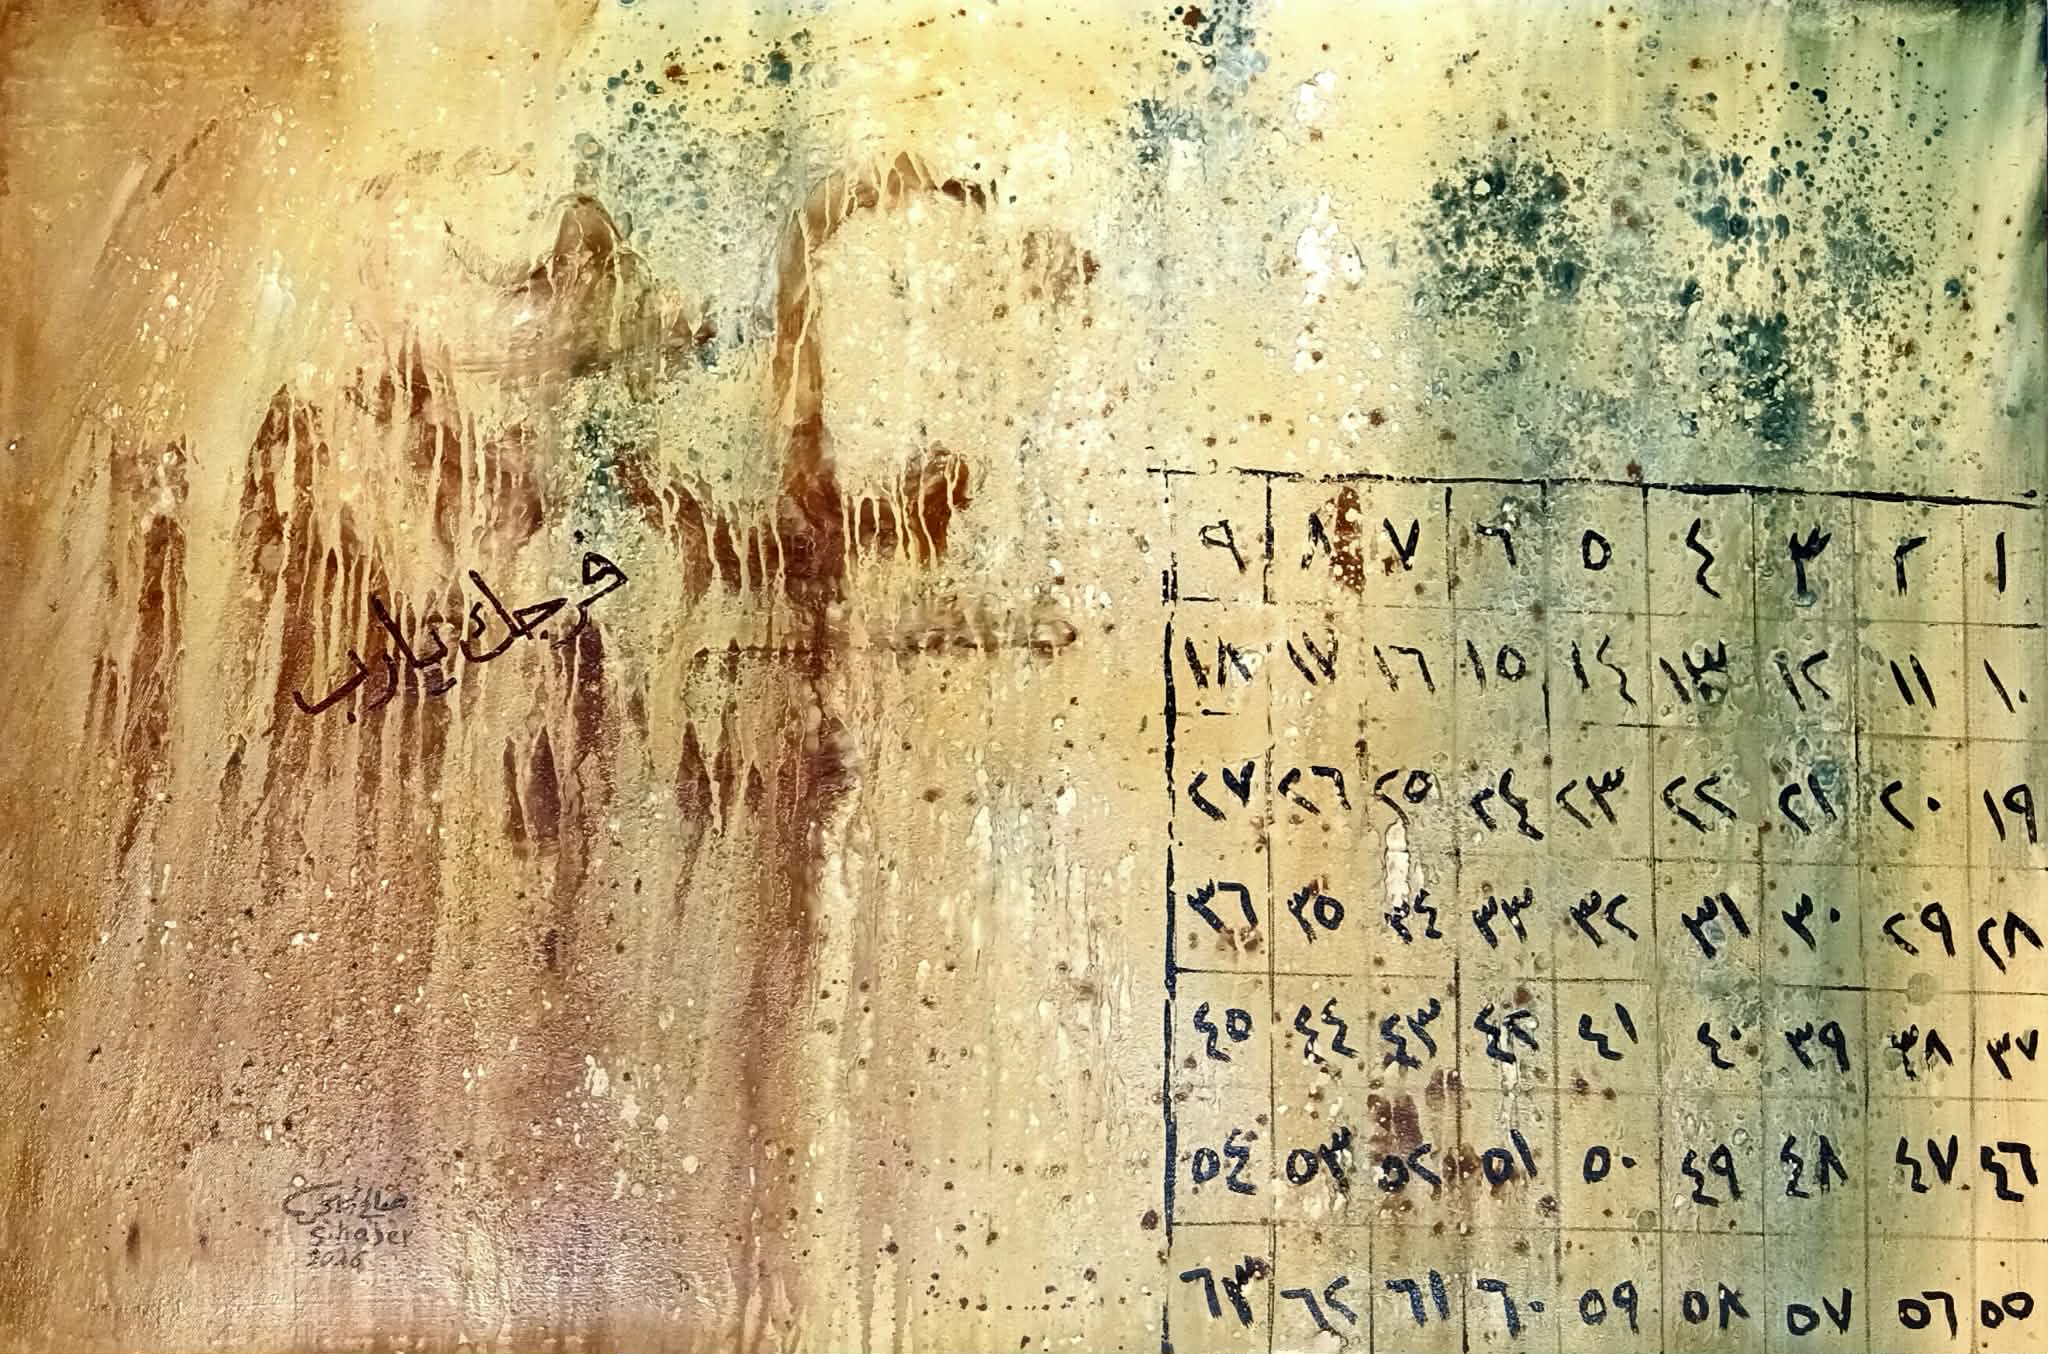 فرجك يارب
١ ٢ ٣ ٤ ٥ ٦ ٧ ٨ ٩
١٠ ١١ ١٢ ١٣ ١٤ ١٥ ١٦ ١٧ ١٨
١٩ ٢٠ ٢١ ٢٢ ٢٣ ٢٤ ٢٥ ٢٦ ٢٧
٢٨ ٢٩ ٣٠ ٣١ ٣٢ ٣٣ ٣٤ ٣٥ ٣٦
٣٧ ٣٨ ٣٩ ٤٠ ٤١ ٤٢ ٤٣ ٤٤ ٤٥
٤٦ ٤٧ ٤٨ ٤٩ ٥٠ ٥١ ٥٢ ٥٣ ٥٤
٥٥ ٥٦ ٥٧ ٥٨ ٥٩ ٦٠ ٦١ ٦٢ ٦٣
s.hader